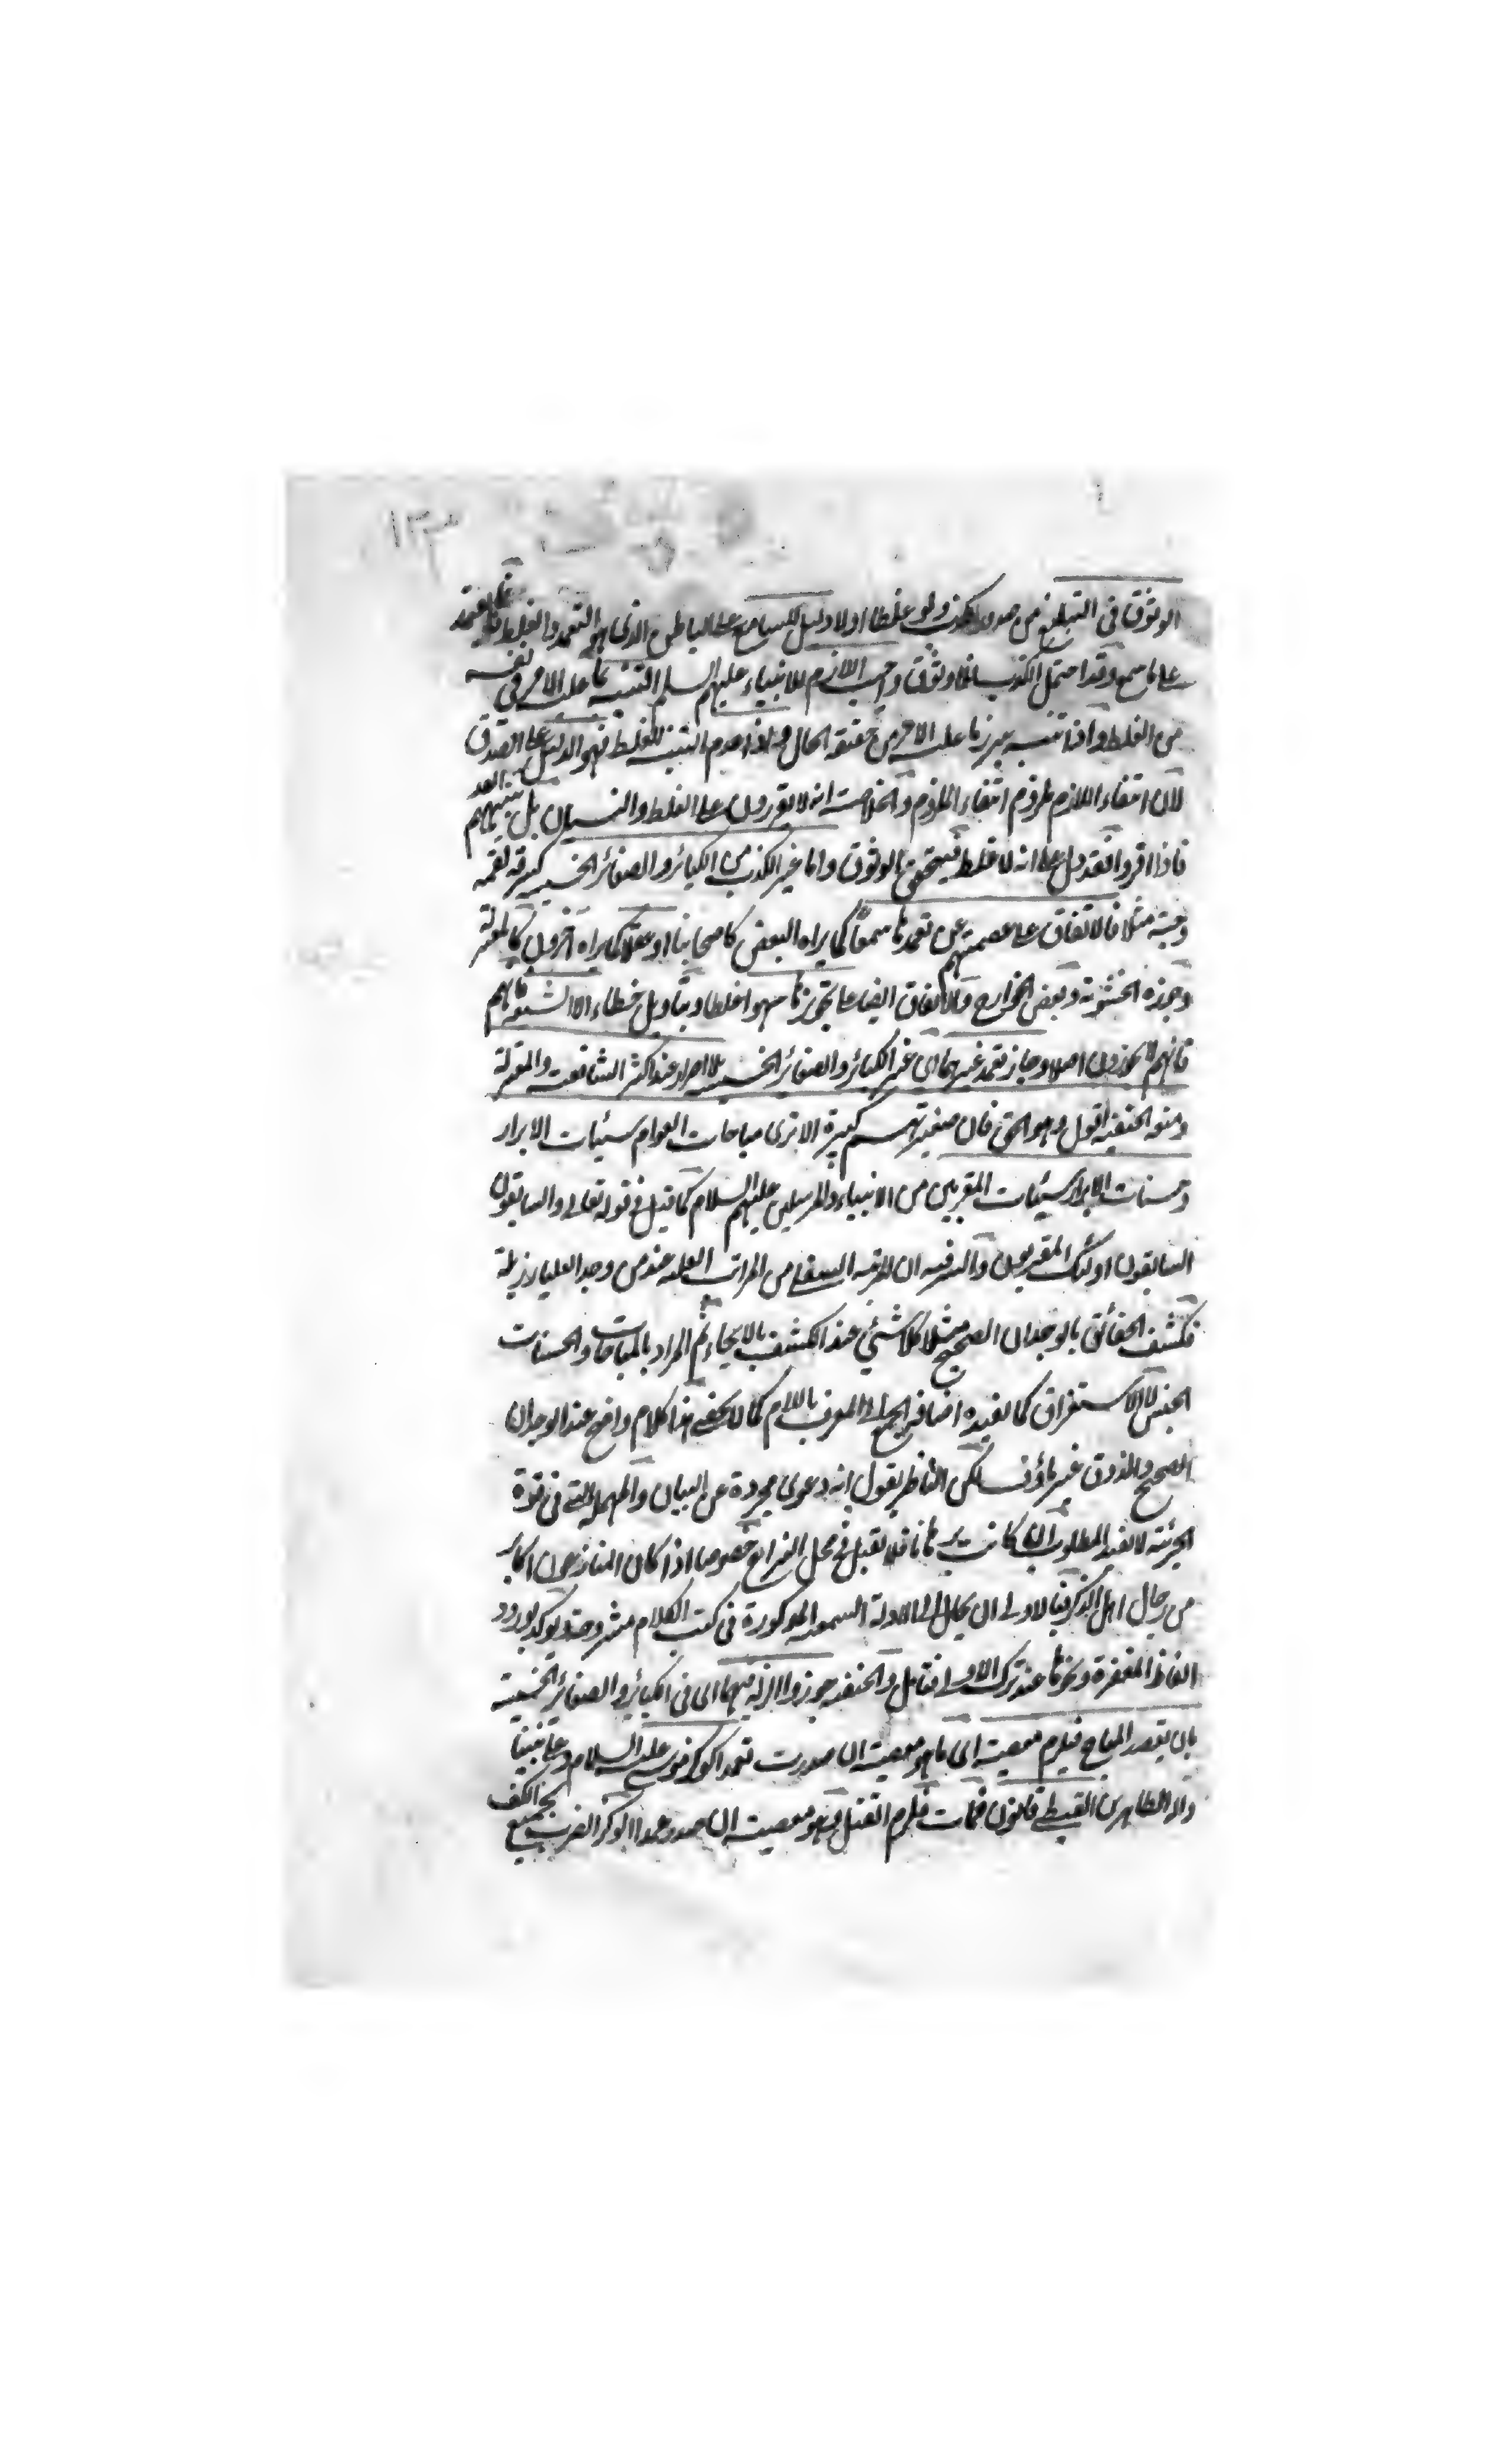 ١٣٣
الوثوق فى التبليغ من صدور الكذب ولو غلطا اولا دليل للسامع على الباطن الذى هو التعمد والغلط فما يعتمد
على ما سمع وقد احتمل الكذب فلا وثوق واجيب اللازم للانبياء عليهم السلم التنبيه عما عليه الامر فى نفسه
من الغلط واذا تنبه ميز ما عليه الامر من حقيقة الحال واذا عدم التنبيه للغلط فهو الدليل على الصدق
لان انتفاء اللازم ملزوم انتفاء الملزوم والخلاصة انه لا يقررون على الغلط والنسيان بل ينبههم الله
فاذا اقروا فقد دل على انه لا غلط فيتحقق الوثوق واما غير الكذب من الكبائر والصغائر الخسيسة كسرقة لقمة
وحبة مثلا فالاتفاق على عصمتهم عن تعمدها سمعاً كما يراه البعض كاصحابنا او عقلا كما يراه آخرون كالمعتزلة
وجوزه الحشوية وبعض الخوارج والاتفاق ايضا على تجويزها سهوا غلطا وبتاويل خطاء الا الشيعة فانهم
فانهم لا يجوزون اصلا وجاز تعمد غيرهما اى غير الكبائر والصغائر الخسيسة بلا اصرار عند اكثر الشافعية والمعتزلة
ومنعه الحنفية اقول وهو الحق فان صغيرتهم كبيرة الا ترى مباحات العوام سيئات الابرار
وحسنات الابرار سيئات المقربين من الانبياء والمرسلين عليهم السلام كما قيل فى قوله تعالى والسابقون
السابقون اولئك المقربون والسر فيه ان المرتبة السفلى من المراتب العلية عند من وجد العليا رذيلة
فكشف الحقائق بالوجدان الصحيح مثلا كلا شيئ عند الكشف بالايحاء ثم المراد بالمباحات والحسنات
الجنس لا الاستغراق كما يفيده اضافة الجمع الى المعرف باللام كما لا يخفى هذا كلام واضح عند الوجدان
الصحيح والذوق غير ماؤف لكن الناظر يقول انه دعوى مجردة عن البيان والمهملة التى فى قوة
الجزئية لا تفيد المطلوب ان كانت برهانا فلا تقبل فى محل النزاع خصوصا اذا كان المنازعون اكابر
من رجال اهل الذكر فالاولى ان يحال الى الادلة السمعية المذكورة فى كتب الكلام مشروحة ويؤكد بورود
الفاظ المغفرة ونحوها عند ترك الاولى فتامل والحنفية جوزوا الزلة فيهما اى فى الكبائر والصغائر الخسيسة
بان يقصد المباح فيلزم معصية اى ما هو معصية ان صدرت تعمدا كوكز موسى عليه السلام وعلى نبينا
وآله الطاهرين القبطى فمات فلزم القتل وهو معصية ان صدر عمدا الوكز الضرب بجميع الكف